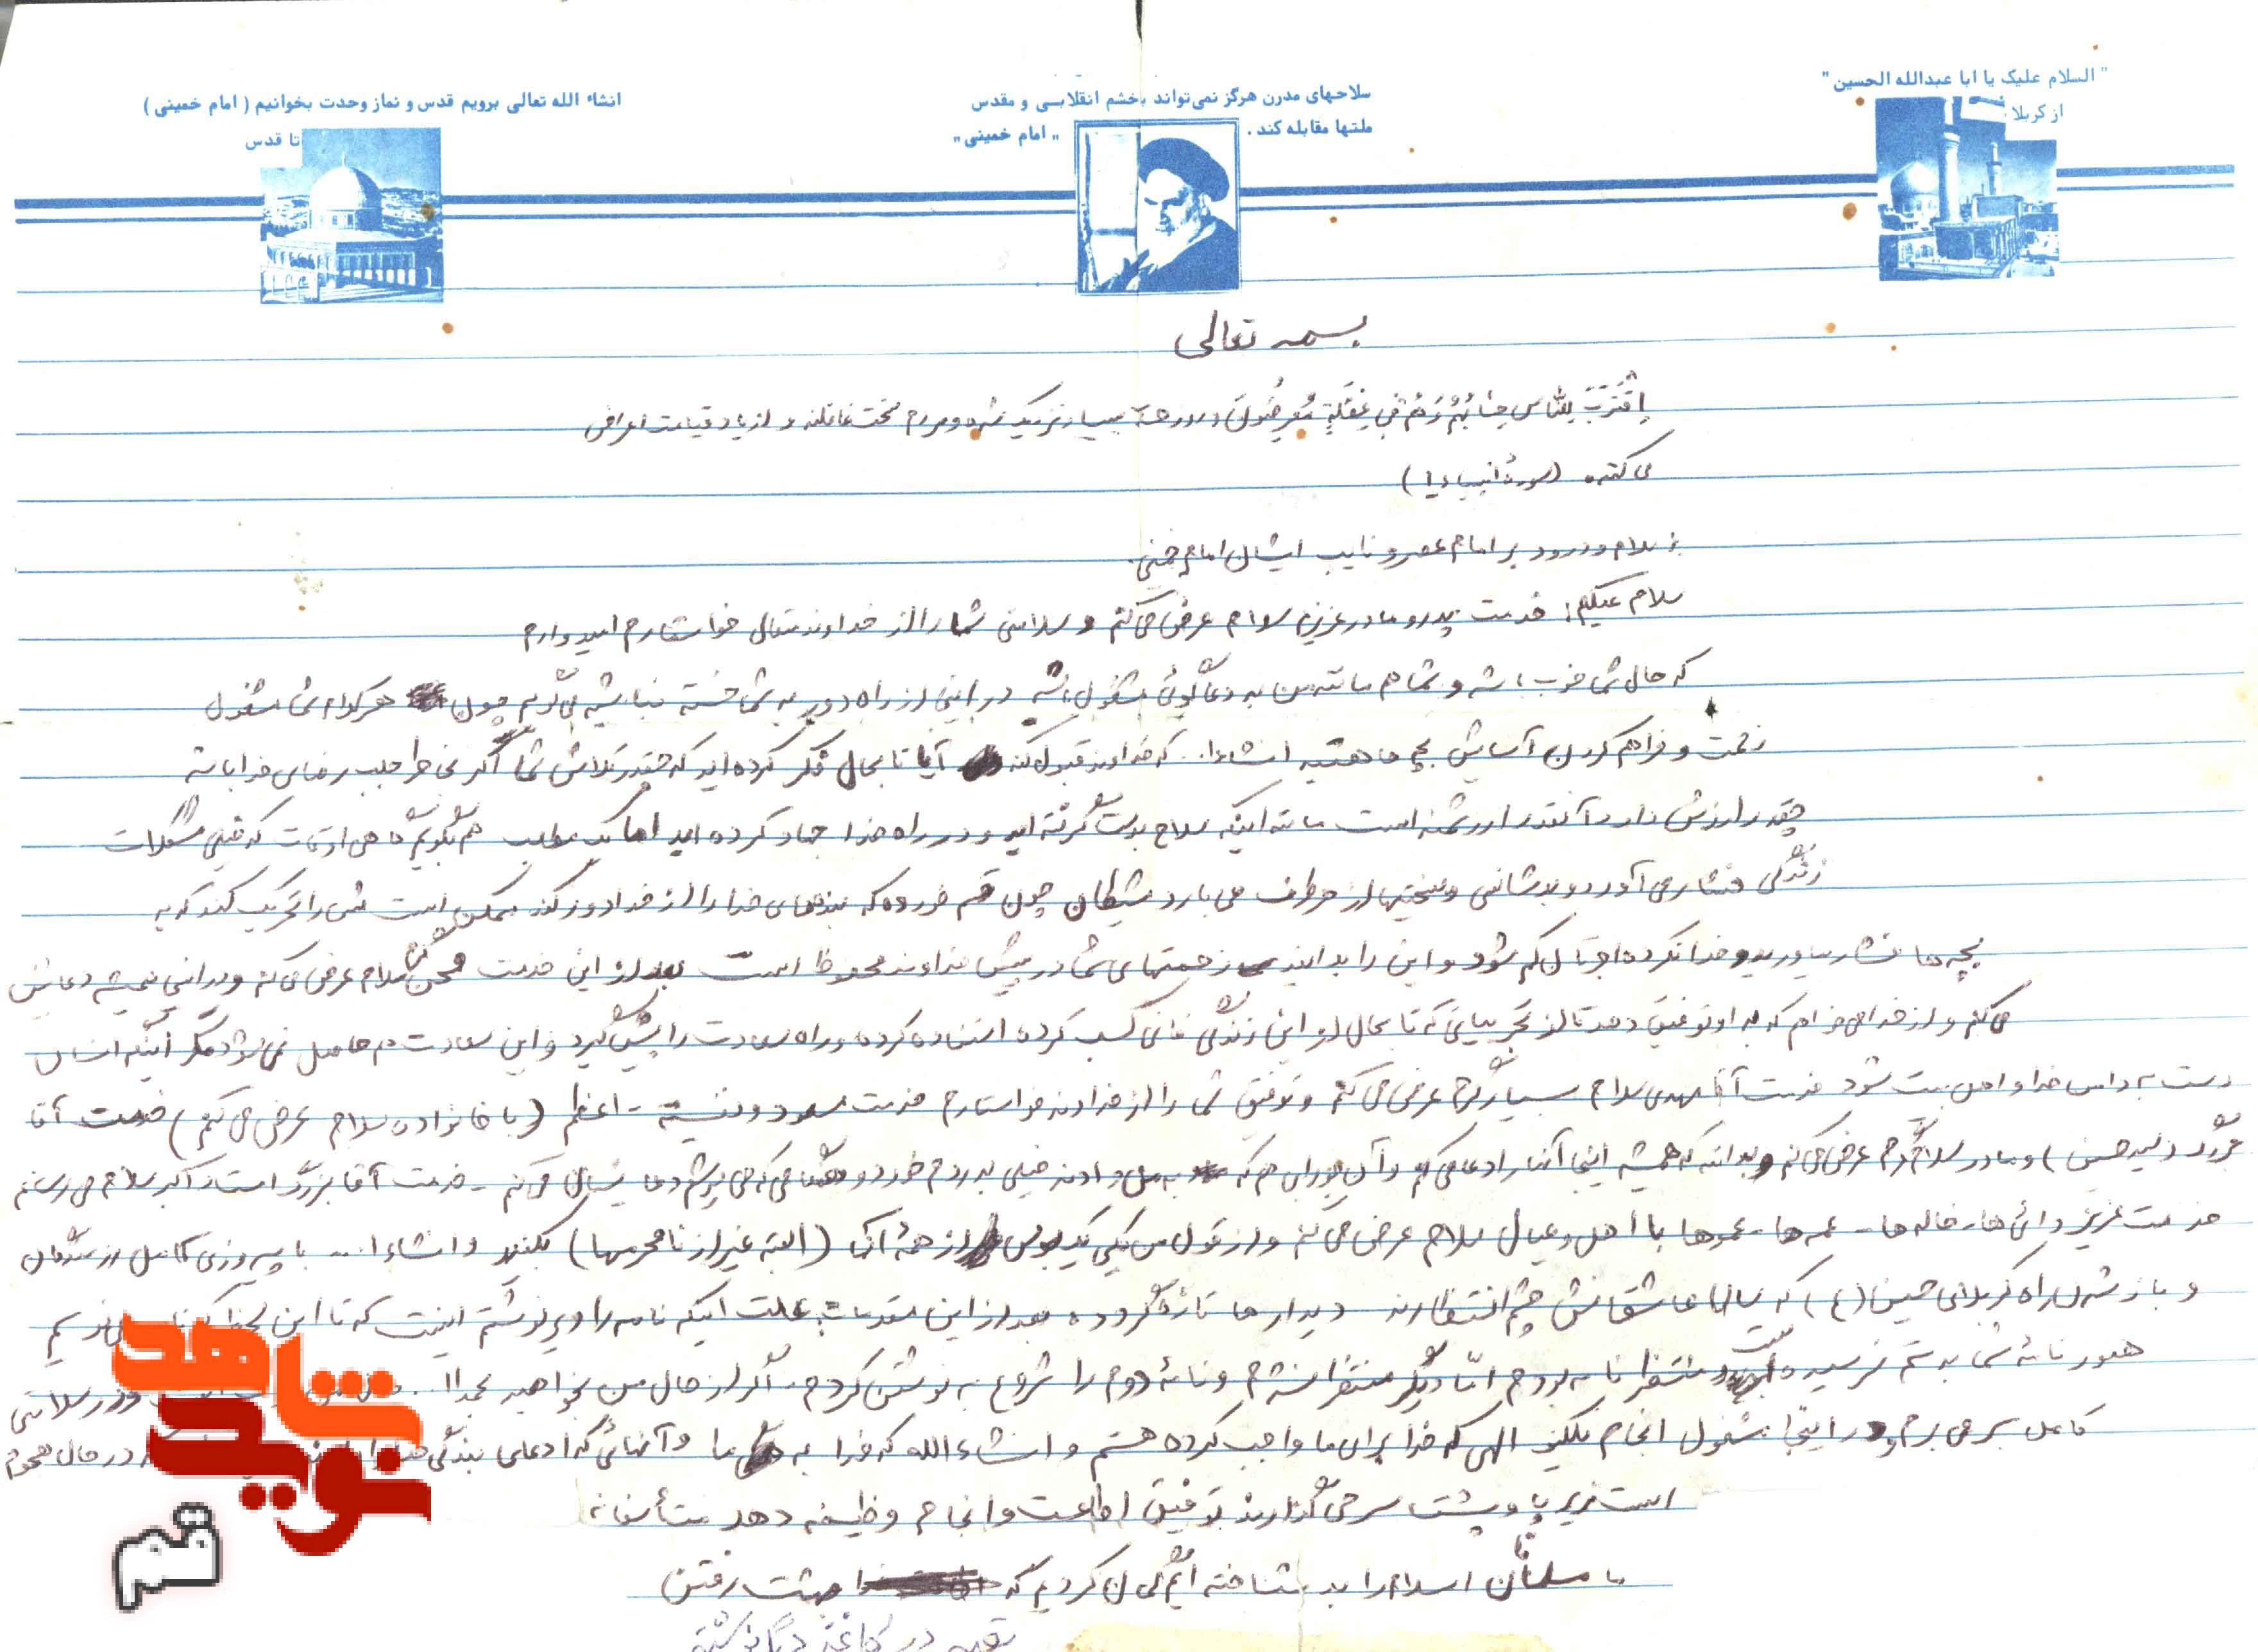 "السلام علیک یا ابا عبدالله الحسین"
از کربلا
سلاحهای مدرن هرگز نمی‌تواند بخشم انقلابی و مقدس
ملتها مقابله کند . "امام خمینی"
انشاء الله تعالی برویم قدس و نماز وحدت بخوانیم ( امام خمینی )
تا قدس
بسمه تعالی
اِقْتَرَبَ لِلنّاسِ حِسابُهُمْ وَهُمْ فی غَفْلَةٍ مُعرِضُونَ بسیار نزدیک شده و مردم سخت غافلند و از یاد قیامت اعراض
می کنند (سورهٔ انبیاء ۱)
با سلام و درود بر امام عصر و نایب ایشان امام خمینی.
سلام علیکم؛ خدمت پدر و مادر عزیزم سلام عرض می‌کنم و سلامتی شما را از خداوند متعال خواستارم امیدوارم
که حال شما خوب باشد و شما هم مانند من به دعاگوئی مشغول باشید در اینجا از راه دور به شما خسته نباشید می‌گویم چون هر کدام شما مشغول
زحمت و فراهم کردن آسایش بچه‌ها هستید انشاءا... که خداوند قبول کند آیا تا بحال فکر کرده‌اید که چقدر تلاش شما اگر بخاطر جلب رضای خدا باشد
چقدر ارزش دارد آنقدر ارزشمند است مانند اینکه سلاح بدست گرفته اید و در راه خدا جهاد کرده اید اما یک مطلب هم بگویم گاهی اوقات که خیلی مشکلات
زندگی فشار می آورد و پریشانی و سختیها از هر طرف می بارد شیطان چون قسم خورده که بنده‌های خدا را از خدا دور کند ممکن است شما را تحریک کند که به
بچه ها فشار بیاورید و خدا نکرده اجرتان کم شود و این را بدانید زحمتهای شما در پیش خداوند محفوظ است بعد از این خدمت محسن سلام عرض می کنم و در اینجا همیشه دعایش
می کنم و از خدا می خواهم که به او توفیق دهد تا از تجربیاتی که تا بحال از این زندگی فانی کسب کرده استفاده کرده و راه سعادت را پیش گیرد و این سعادت هم حاصل نمی شود مگر اینکه انسان
دست به دامن خدا و اهل بیت شود خدمت آقا مهدی سلام بسیار گرم عرض می کنم و توفیق شما را از خداوند خواستارم خدمت مسعود و نفیسه - اعظم (با خانواده سلام عرض می کنم) خدمت آقا
بزرگ و مادر سلام گرم عرض می کنم و بدانند که همیشه اینجا آنها را دعا می کنم خیلی بدردم خورد و هنگامی که می پوشم دعا یشان می کنم - خدمت آقا بزرگ سلام می رسانم
خدمت عزیز دائی ها - خاله ها - عمه ها - عموها با اهل و عیال سلام عرض می کنم و از قول من یکی یک بوس از همهٔ آنها (البته غیر از نامحرمها) بکنید و انشاءا... با پیروزی کامل رزمندگان
و باز شدن راه کربلای حسین (ع) که سالها عاشقانش چشم انتظارند دیدارها تازه گردد بعد از این مقدمات علت اینکه نامه را دیر نوشتم اینست که تا این لحظه که
هنوز نامهٔ شما به دستم نرسیده است منتظر نامه بودم امّا دیگر منتظر نشدم و نامهٔ دوم را شروع به نوشتن کردم. اگر از حال من بخواهید بحمدا... و در سلامتی
کامل بسر می برم در اینجا مشغول انجام تکلیف الهی که خدا برای ما واجب کرده هستم و انشاءالله که خدا به ما و آنهائی که ادعای بندگی در حال هجوم
است زیر پا و پشت سر می گذارند توفیق اطاعت و انجام وظیفه دهد متأسفانه
ما مسلمانان اسلام را بد شناخته ایم گمان کردیم که بهشت رفتن
بقیه در کاغذ دیگر نوشته
نوید شاهد
قم